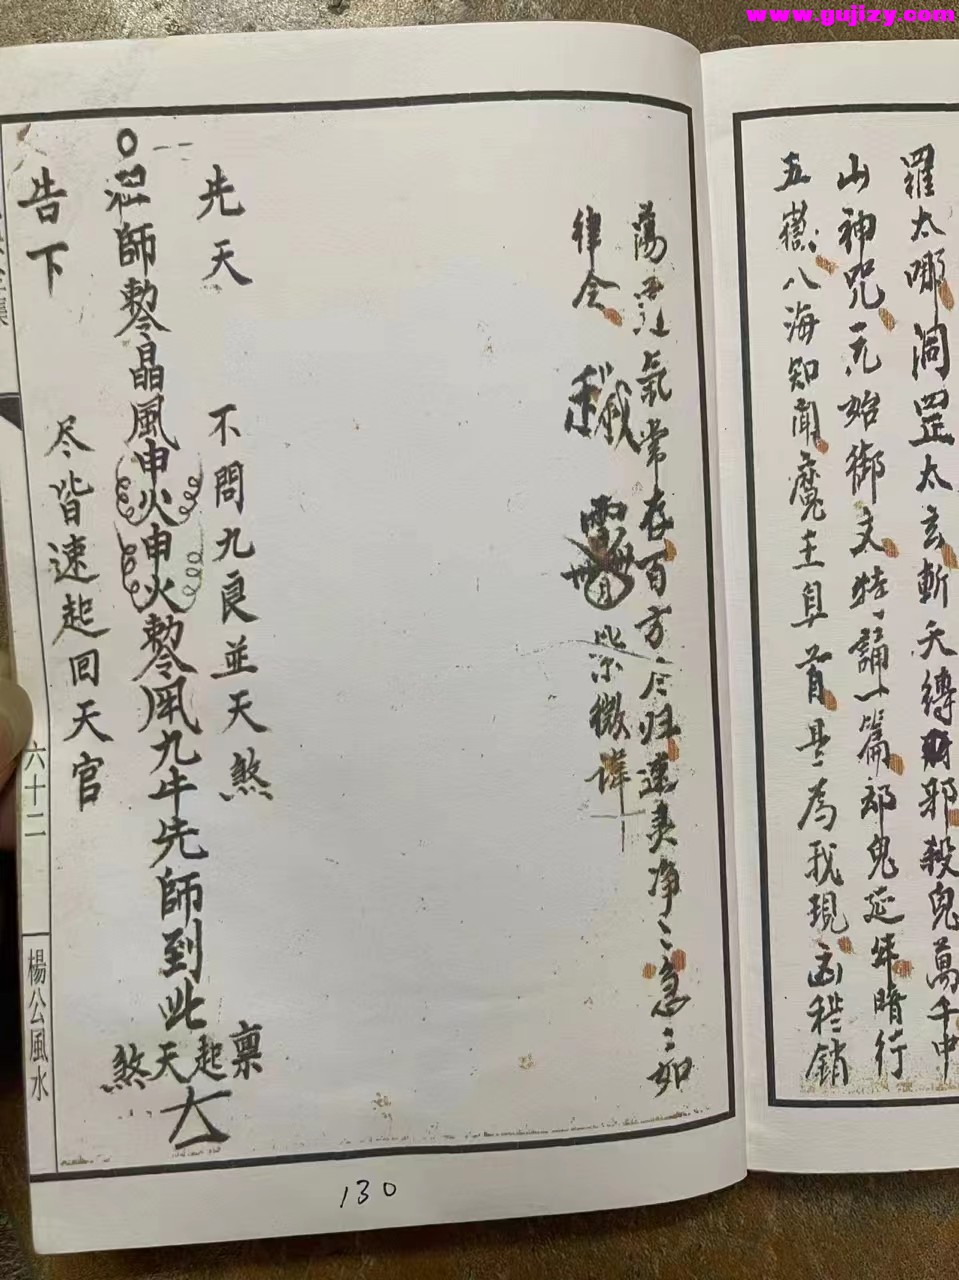 www.gujizy.com
羅太哪洞罡太玄斬夭縛邪殺鬼萬千中
山神咒元始御文特誦一篇却鬼延年暗行
五嶽八海知聞魔王首為我現销
蕩氣常存百方归速净〻急〻如
律令
紫微諱
先天
不問九良並天煞
祖師敕令晶風申火申火敕令九牛先師到此
稟起天煞
告下
尽皆速起回天官
六十二
楊公風水
130